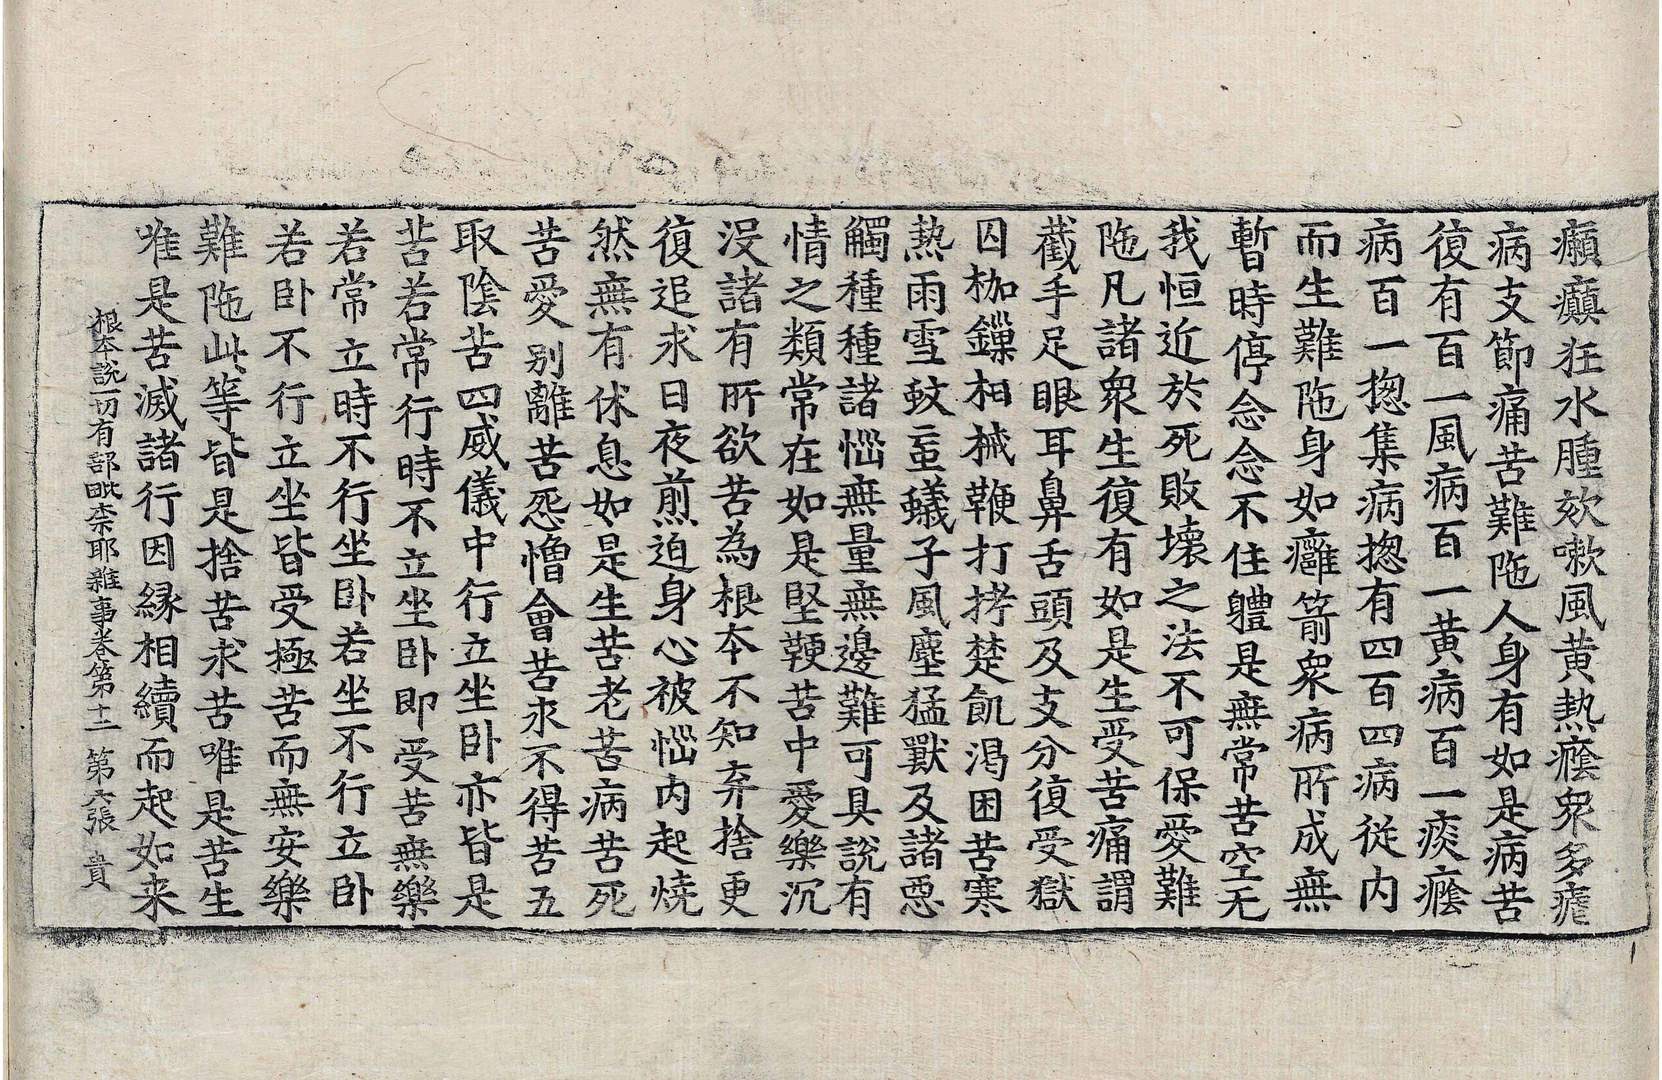 癩癲狂水腫欬嗽風黃熱癊衆多瘧
病支節痛苦難陁人身有如是病苦
復有百一風病百一黃病百一痰癊
病百一揔集病揔有四百四病從内
而生難陁身如癰箭衆病所成無
暫時停念念不住體是無常苦空无
我恒近於死敗壞之法不可保愛難
陁凡諸衆生復有如是生受苦痛謂
截手足眼耳鼻舌頭及支分復受獄
囚枷鏁杻械鞭打拷楚飢渴困苦寒
熱雨雪蚊䖝蟻子風塵猛獸及諸惡
觸種種諸惱無量無邊難可具說有
情之類常在如是堅鞕苦中愛樂沉
没諸有所欲苦為根本不知弃捨更
復追求日夜煎迫身心被惱内起燒
然無有休息如是生苦老苦病苦死
苦愛别離苦怨憎會苦求不得苦五
取陰苦四威儀中行立坐卧亦皆是
苦若常行時不立坐卧即受苦無樂
若常立時不行坐卧若坐不行立卧
若卧不行立坐皆受極苦而無安樂
難陁此等皆是捨苦求苦唯是苦生
唯是苦滅諸行因緣相續而起如来
根本說一切有部毗柰耶雜事卷第十二 第六張 貴